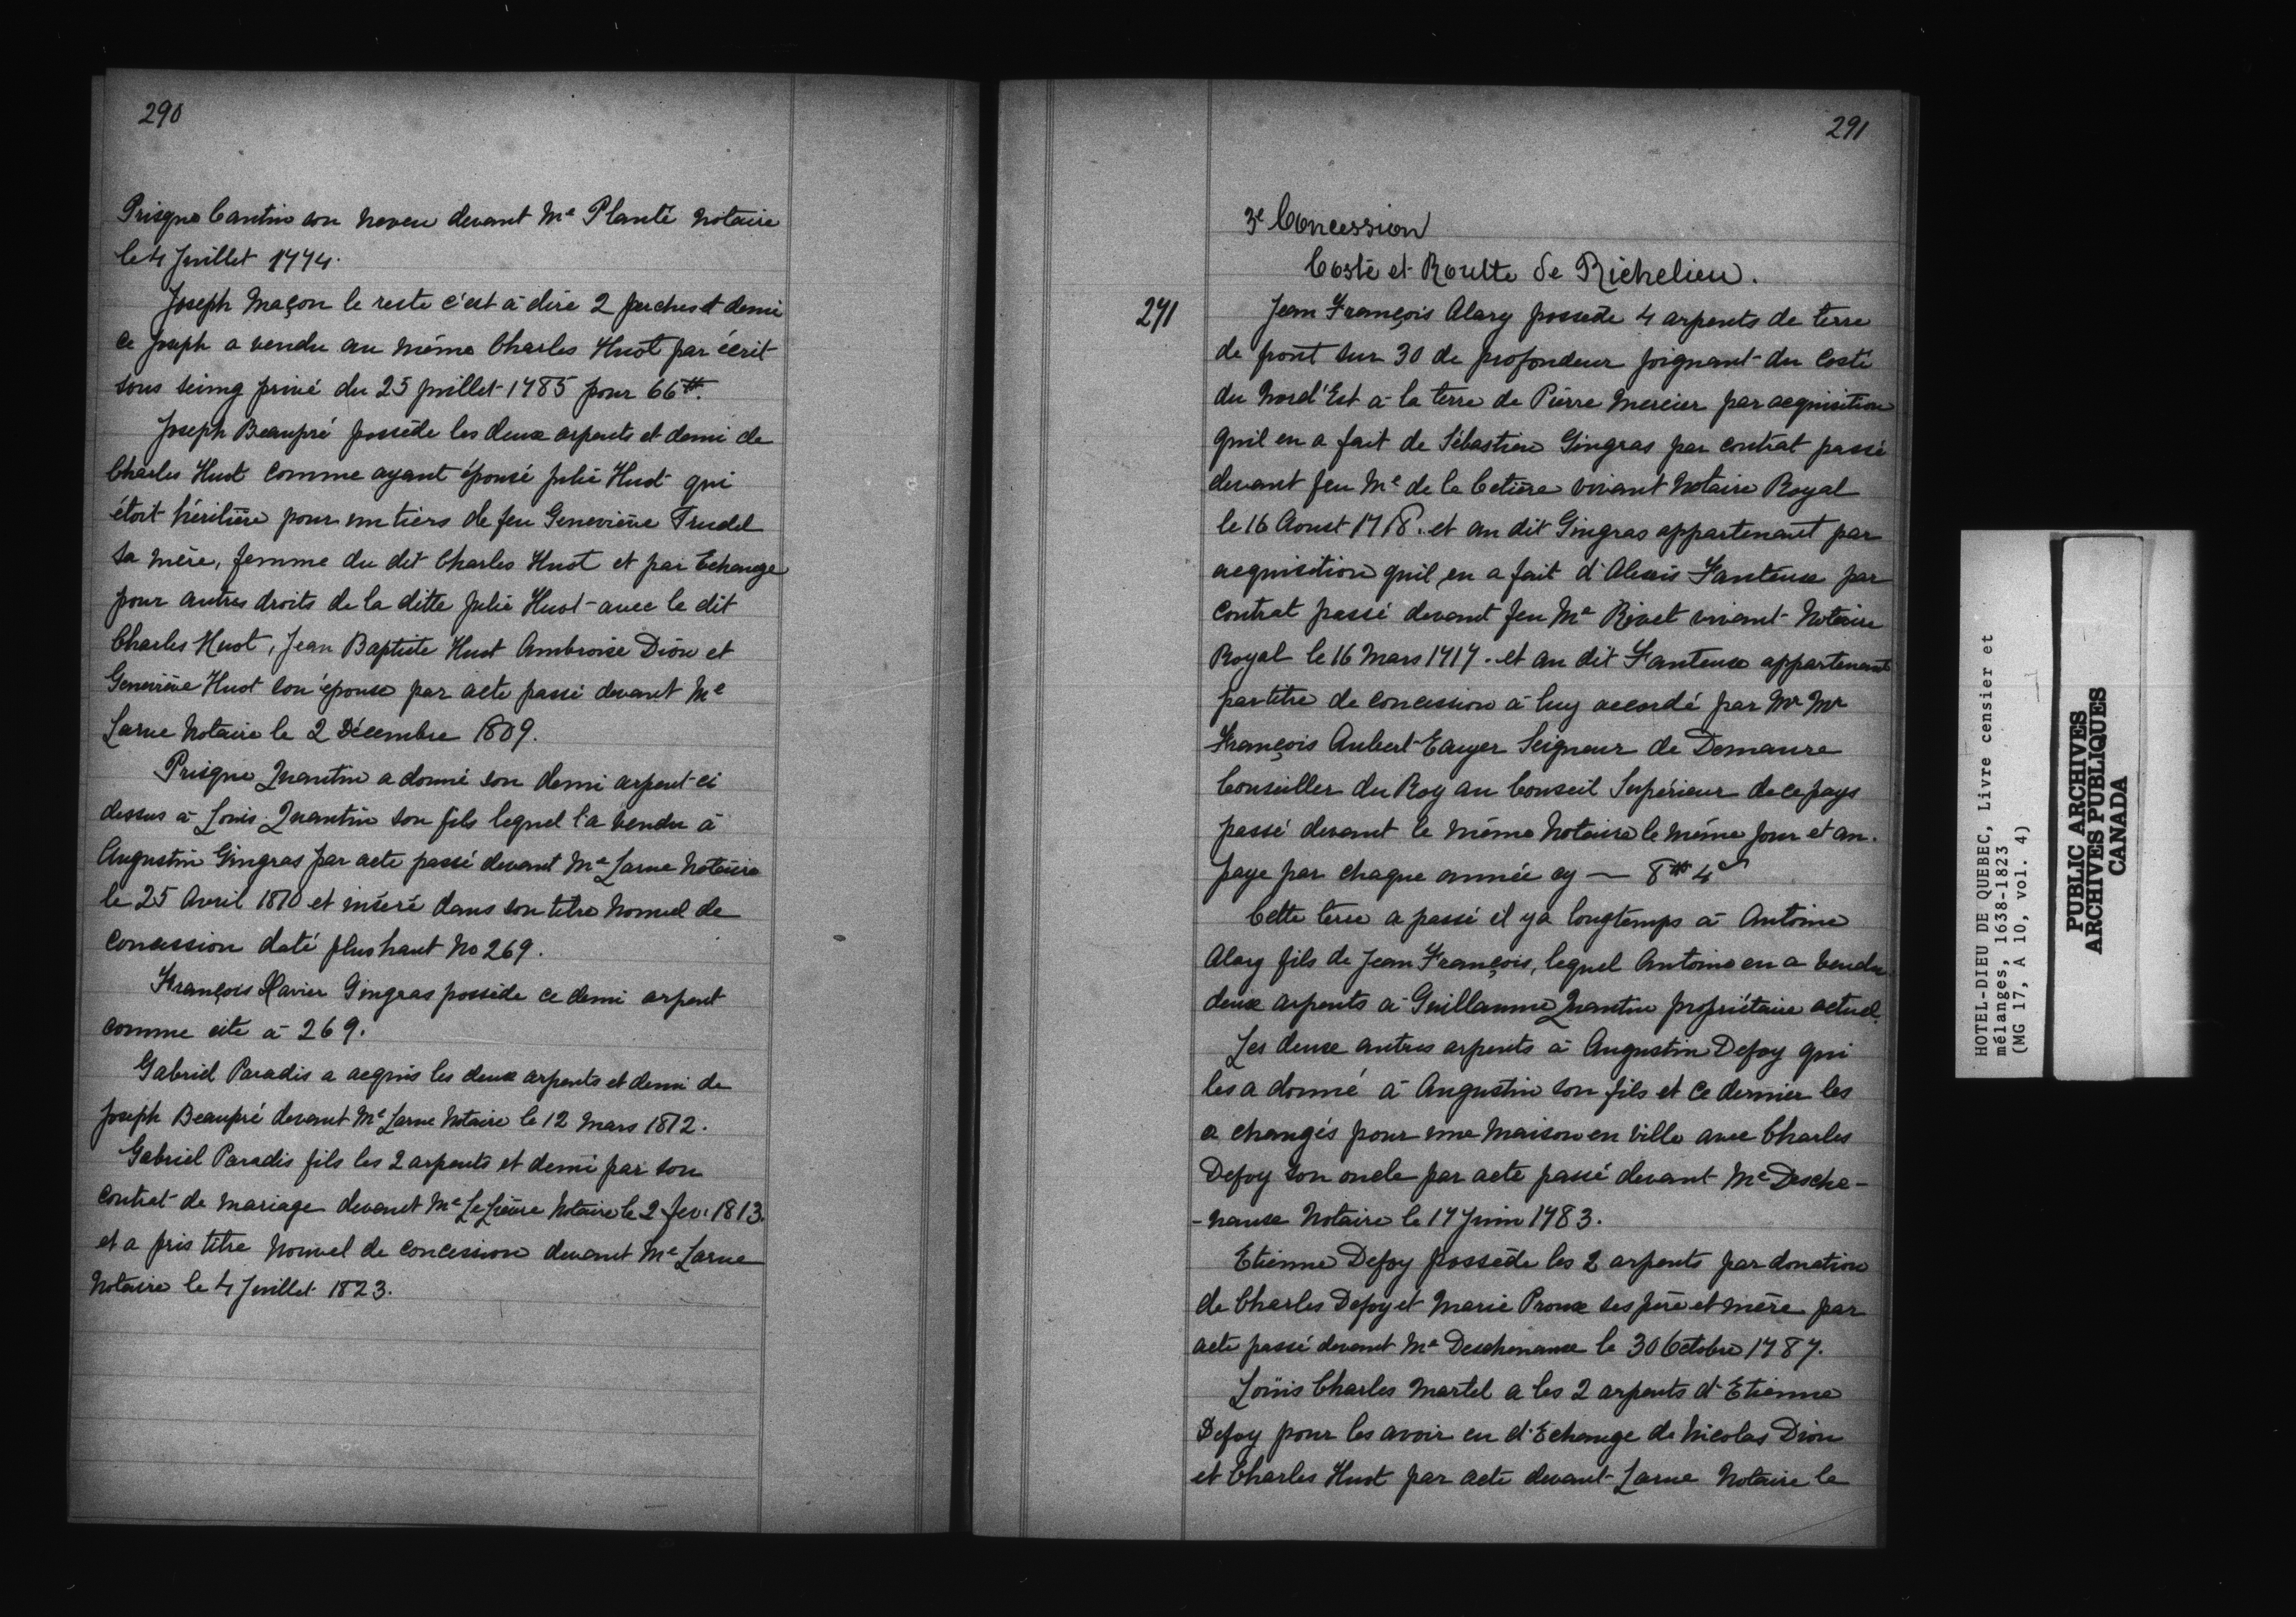 290
Prisque Cantin son neveu devant Me Planté Notaire
le 4 Juillet 1774.
Joseph Maçon le reste c'est à dire 2 perches et demi
ce Joseph a vendu au même Charles Huot par écrit
sous seing privé du 25 Juillet 1785 pour 66tt.
Joseph Beaupré possède les deux arpents et demi de
Charles Huot comme ayant épousé Julie Huot qui
étoit héritière pour un tiers de feu Geneviève Trudel
sa mère, femme du dit Charles Huot et par Echange
pour autres droits de la ditte Julie Huot avec le dit
Charles Huot, Jean Baptiste Huot Ambroise Dion et
Geneviève Huot son épouse par acte passé devant Me
Larue Notaire le 2 Décembre 1809.
Prisque Quantin a donné son demi arpent ci
dessus à Louis Quantin son fils lequel l'a vendu à
Augustin Gingras par acte passé devant Me Larue Notaire
le 25 Avril 1810 et inséré dans son titre Nouvel de
concession daté plus haut No 269.
François Xavier Gingras possède ce demi arpent
comme cité à 269.
Gabriel Paradis a acquis les deux arpents et demi de
Joseph Beaupré devant Me Larue Notaire le 12 Mars 1812.
Gabriel Paradis fils les 2 arpents et demi par son
contrat de mariage devant Me LeLièvre Notaire le 2 fev: 1813.
et a pris titre Nouvel de concession devant Me Larue
Notaire le 4 Juillet 1823.
291
3e Concession
Costé et Routte de Richelieu.
271
Jean François Alary possede 4 arpents de terre
de front sur 30 de profondeur joignant du costé
du Nord'Est à la terre de Pierre Mercier par acquisition
quil en a fait de Sébastien Gingras par contrat passé
devant feu Me de la Cetière vivant Notaire Royal
le 16 Aoust 1718. et au dit Gingras appartenant par
acquisition quil en a fait d'Alexis Fanteux par
contrat passé devant feu Me Rivet vivant Notaire
Royal le 16 Mars 1717. et au dit Fanteux appartenant
par titre de concession à luy accordé par Mr Mr
François Aubert Ecuyer Seigneur de Demaure
Conseiller du Roy au Conseil Supérieur de ce pays
passé devant le même Notaire le même jour et an.
paye par chaque année cy — 8tt 4s
Cette terre a passé il y a longtemps à Antoine
Alary fils de Jean François, lequel Antoine en a vendu
deux arpents à Guillaume Quantin propriétaire actuel.
Les deux autres arpents à Augustin Defoy qui
les a donné à Augustin son fils et ce dernier les
a changés pour une maison en ville avec Charles
Defoy son oncle par acte passé devant Me Desche-
-naux Notaire le 17 Juin 1783.
Etienne Defoy possède les 2 arpents par donation
de Charles Defoy et Marie Proux ses père et mère par
acte passé devant Me Deschenaux le 30 Octobre 1787.
Loüis Charles Martel a les 2 arpents d'Etienne
Defoy pour les avoir eu d'Echange de Nicolas Dion
et Charles Huot par acte devant Larue Notaire le
HOTEL-DIEU DE QUEBEC, Livre censier et
mélanges, 1638-1823
(MG 17, A 10, vol. 4)
PUBLIC ARCHIVES
ARCHIVES PUBLIQUES
CANADA